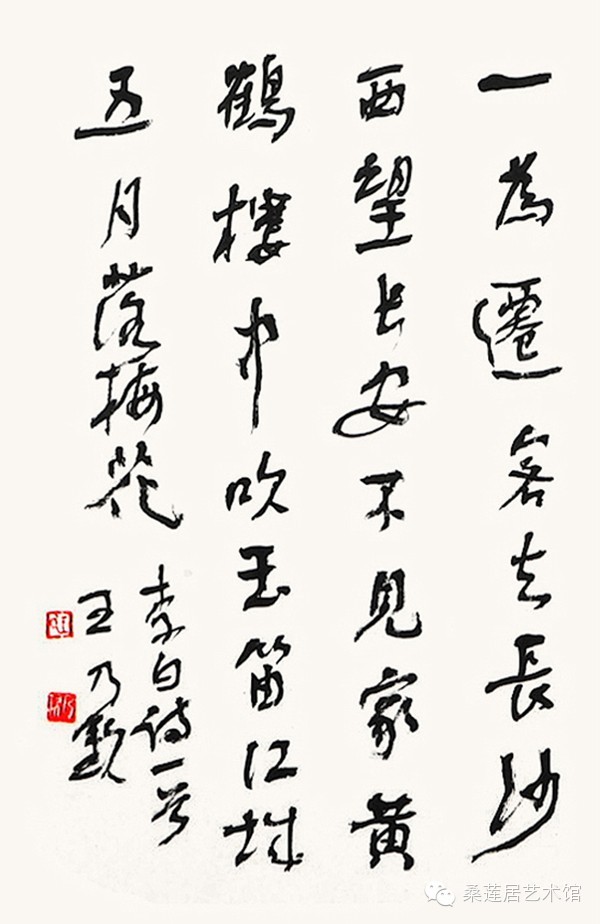 一為遷客去長沙
西望长安不見家黄
鶴樓中吹玉笛江城
五月落梅花
李白诗一首
王乃
桑莲居艺术馆